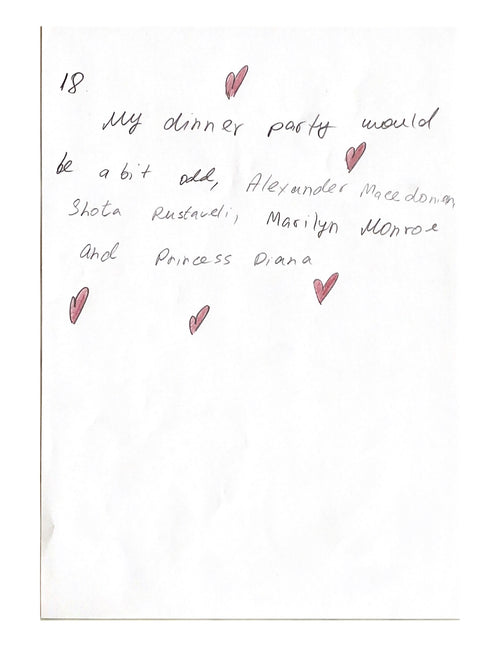 18
My dinner party would
be a bit odd, Alexander Macedonian
Shota Rustaveli, Marilyn Monroe
and Princess Diana